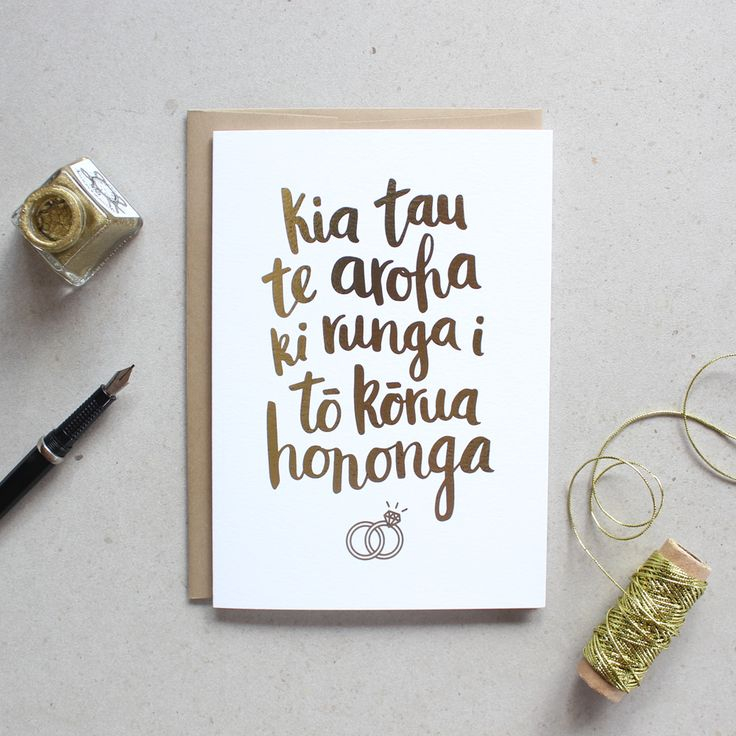 kia tau
te aroha
ki runga i
tō kōrua
hononga